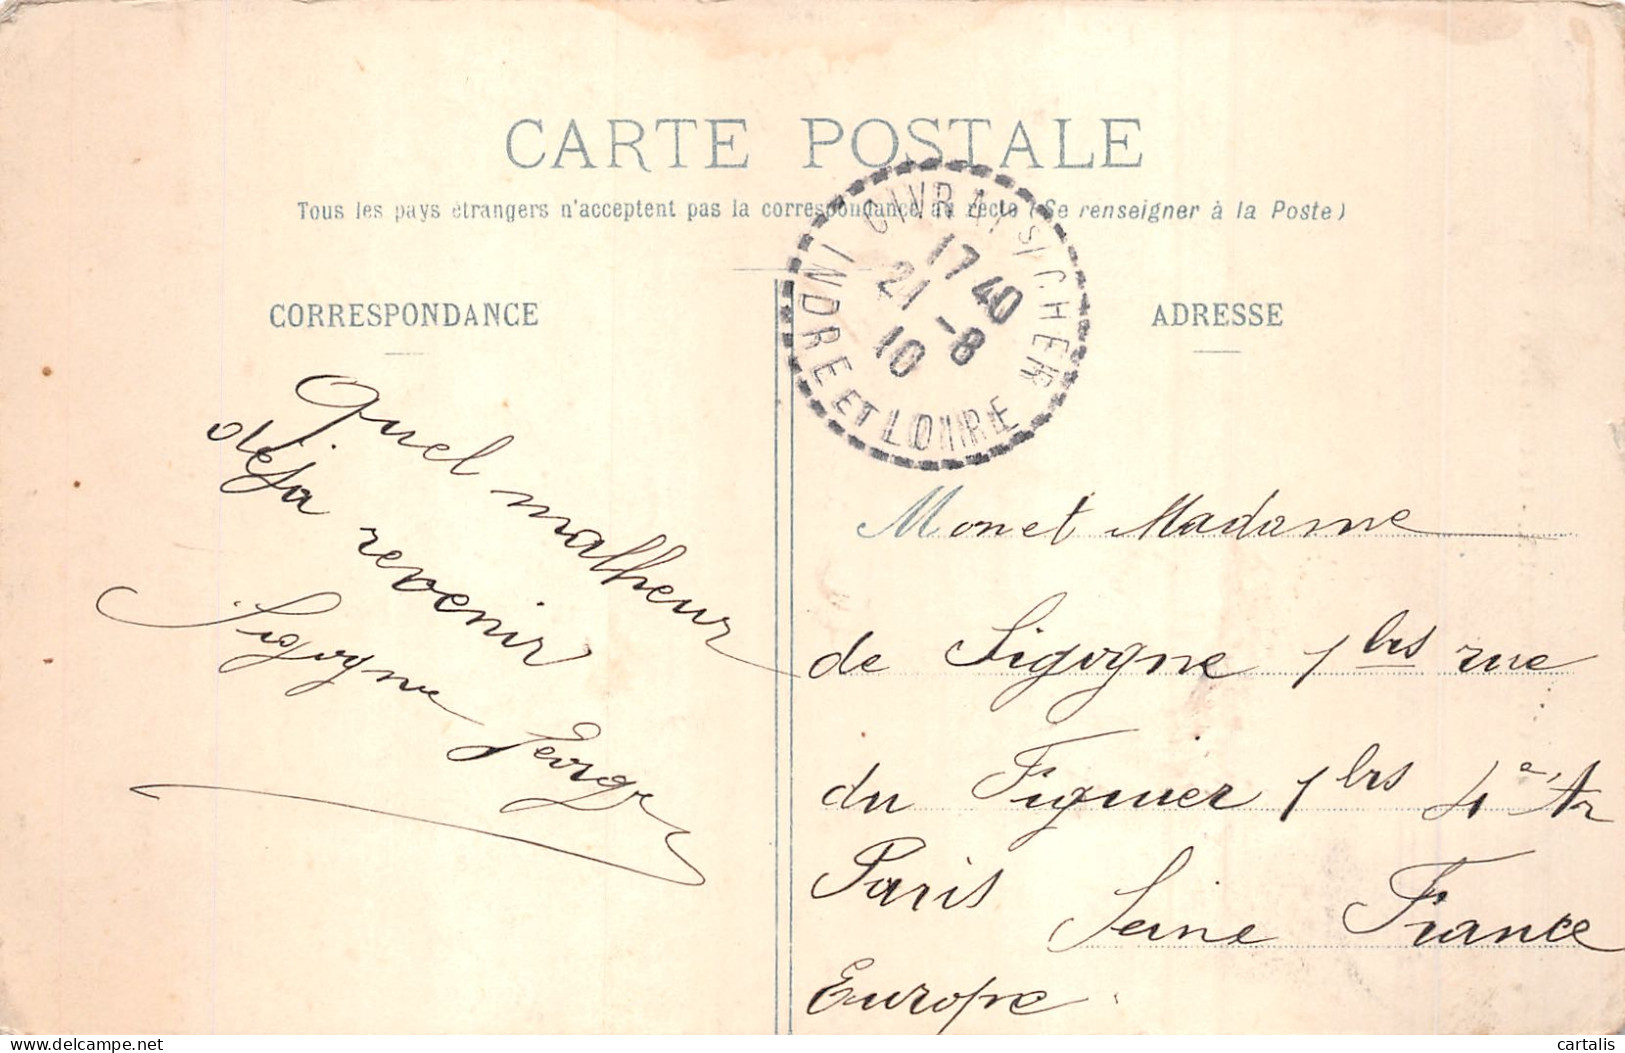 CARTE POSTALE
Tous les pays étrangers n'acceptent pas la correspondance au recto (Se renseigner à la Poste)
CIVRAY S/ CHER
17 40
21 -8
10
INDRE ET LOIRE
CORRESPONDANCE
Quel malheur
déja revenir
Sigogne George
ADRESSE
M on et Madame
de Sigogne 1 bis rue
du Figuier 1 bis 4e Ar
Paris Seine France
Europe
delcampe.net
cartalis